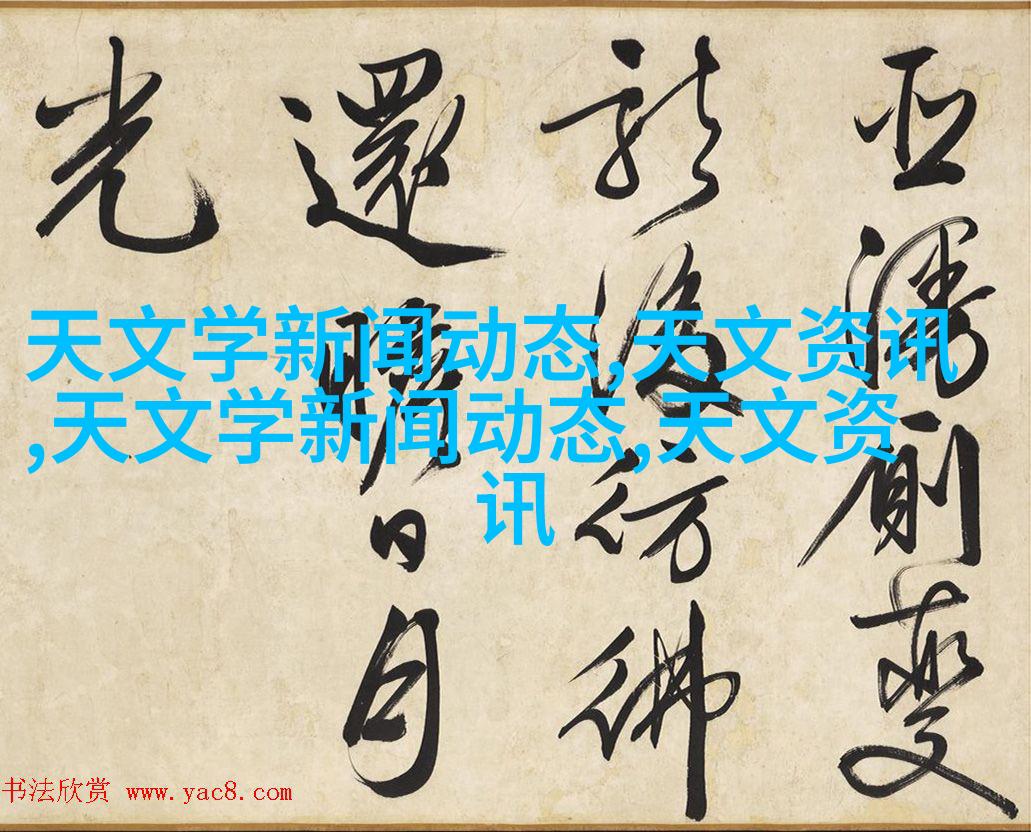 廁夔
龍後彷彿
還瞻日月
光
天文学新闻动态,天文资讯
,天文学新闻动态,天文资
讯
书法欣赏 www.yac8.com